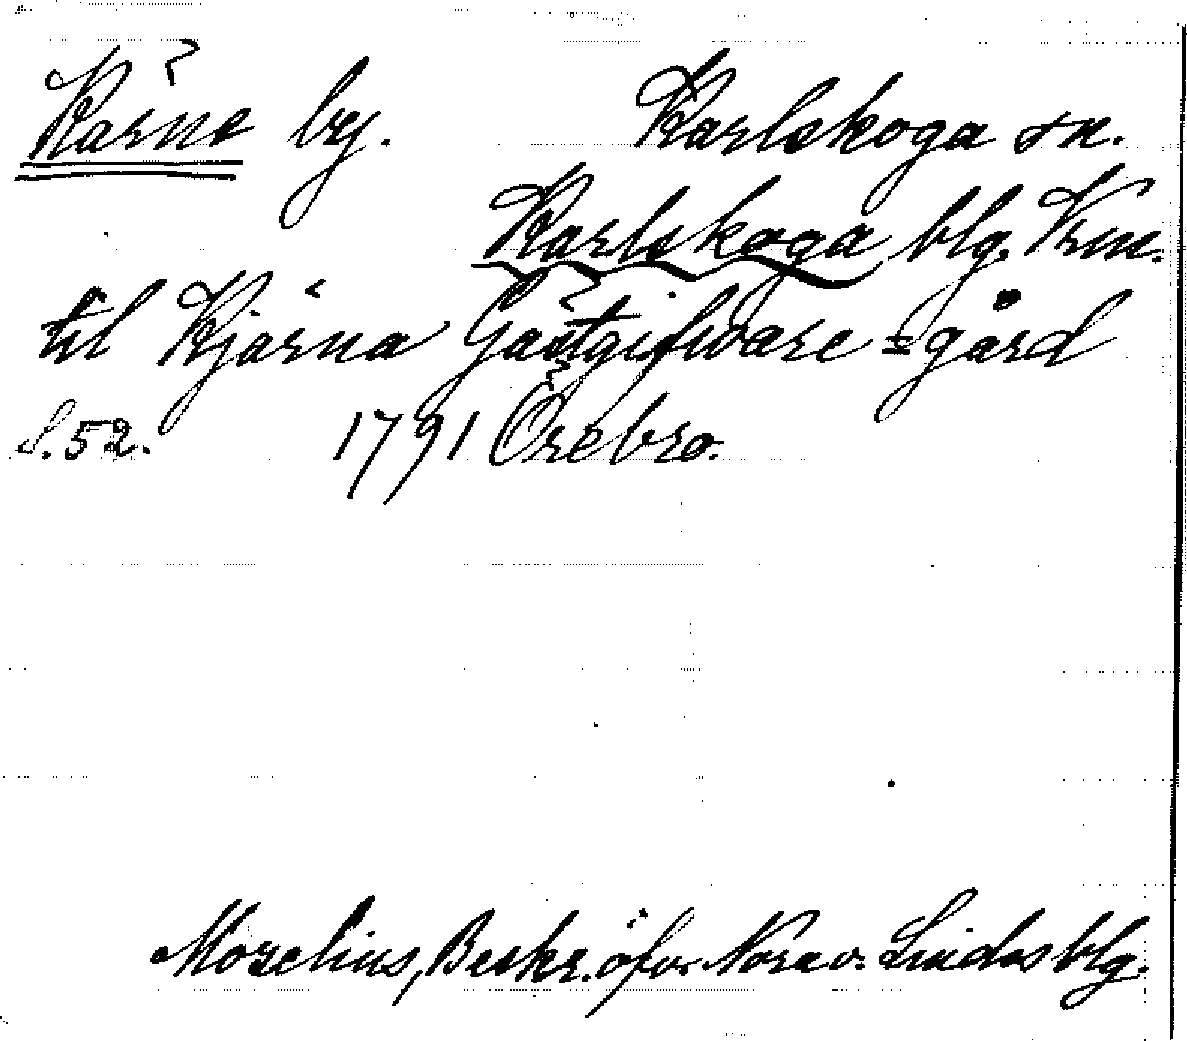 Kärne by. Karlskoga sn.
Karlskoga blg. Krn.
til Kjärna Gästgifware=gård
S. 52. 1791 Örebro.
Mozelius, Beskr. öfv. Nora o. Lindes blg.